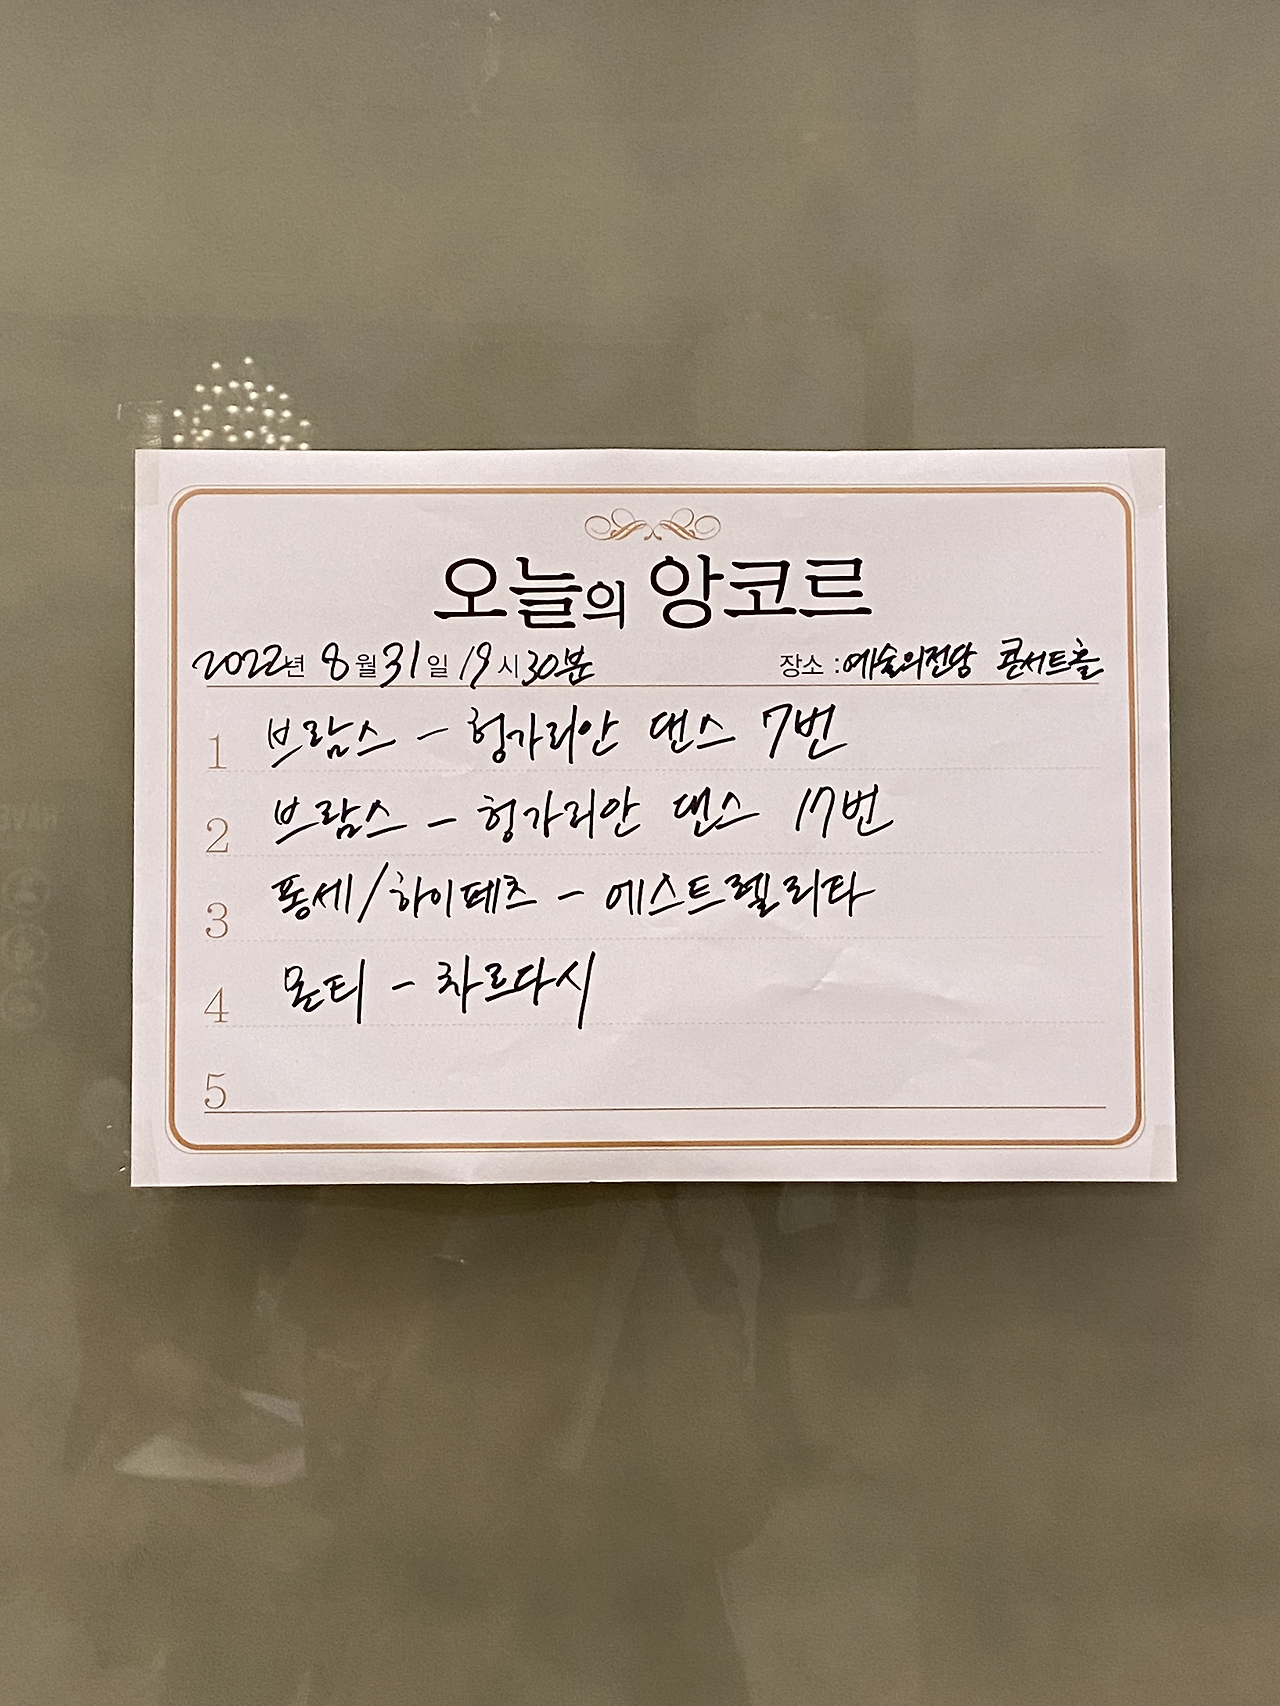 오늘의 앙코르
2022년 8월 31일 19시 30분 장소 : 예술의전당 콘서트홀
1 브람스 - 헝가리안 댄스 7번
2 브람스 - 헝가리안 댄스 17번
3 퐁세/하이페츠 - 에스트렐리타
4 몬티 - 차르다시
5